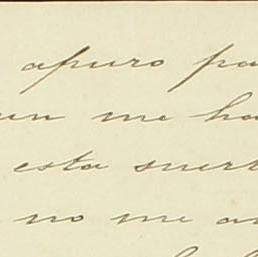 apuro pa
un me ha
esta suert
no me a